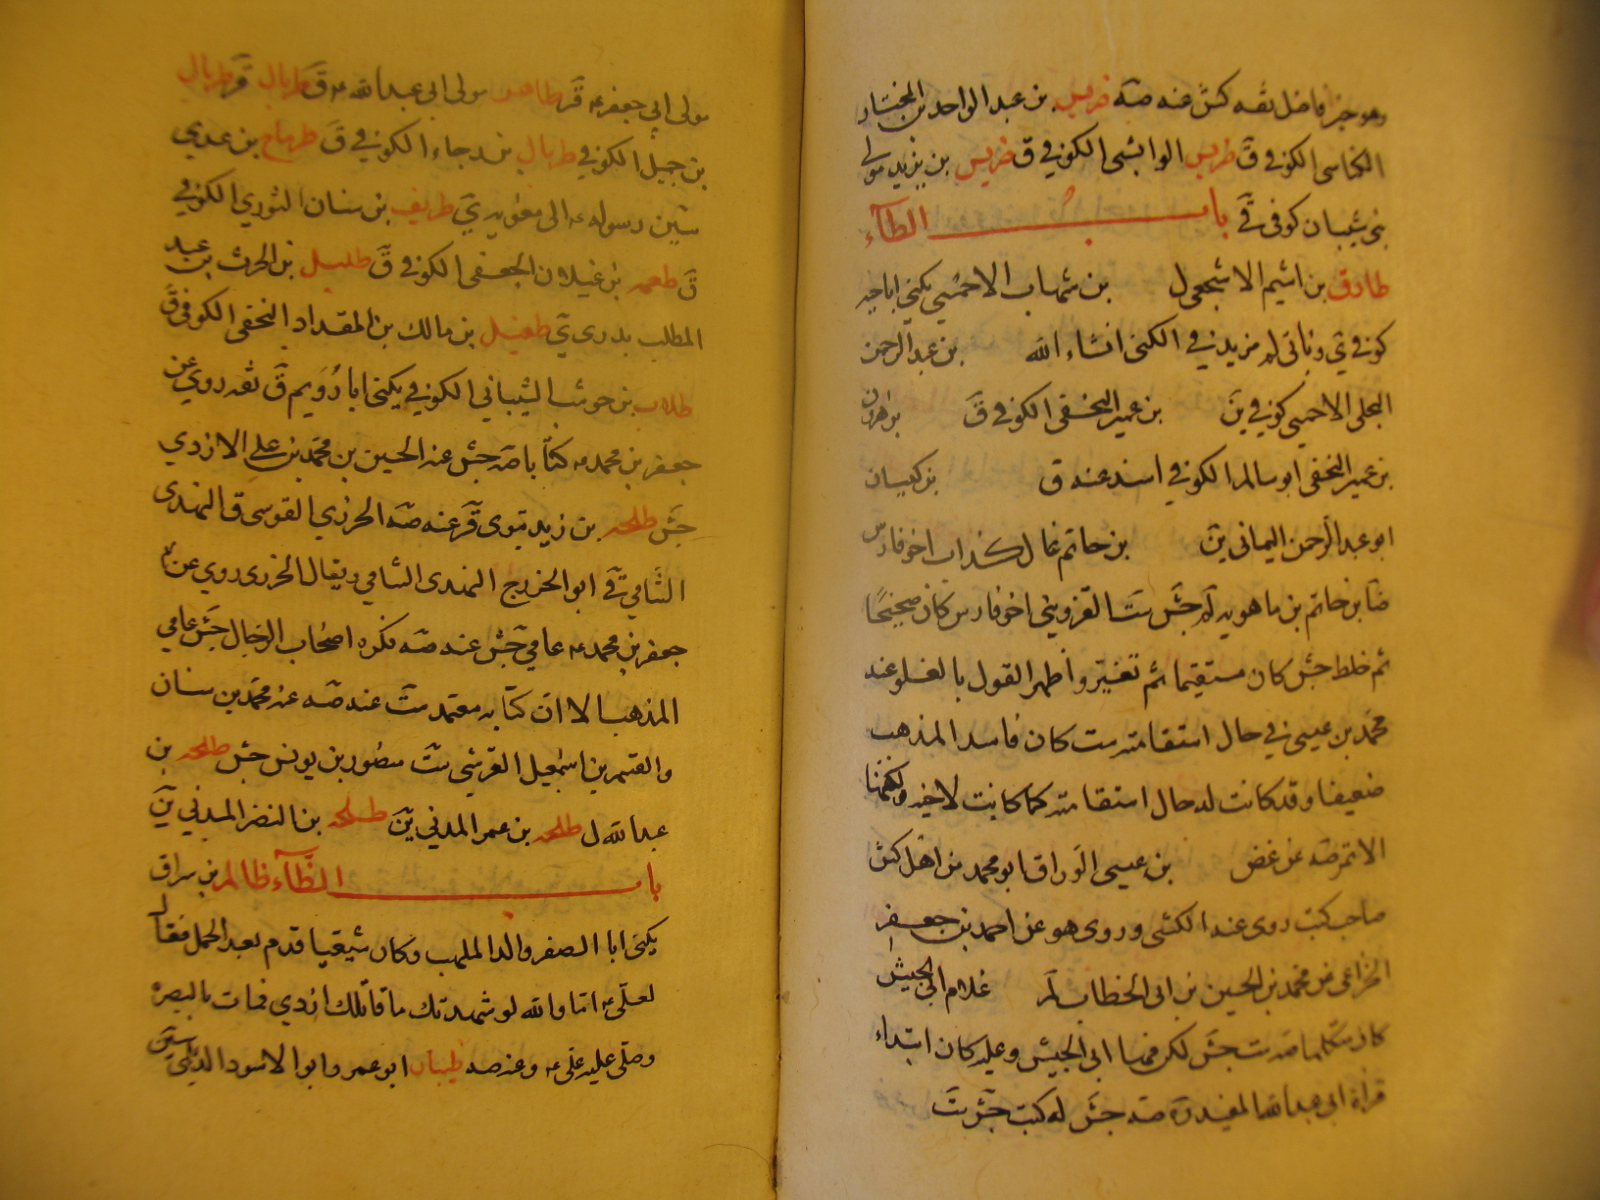 وهو خير فاضل ثقه كش عنه صه ضريس بن عبد الواحد بن المختار
الكناسى الكوفى ق ضريس الوابشى الكوفى ق ضريس بن يزيد مولى
بنى شيبان كوفى ق باب الطآء
طارق بن اشيم الاشجعى ل بن شهاب الاحمسى يكنى ابا حيه
كوفى ى وياتى له مزيد فى الكنى انشاء الله بن عبد الرحمن
البجلى الاحمسى كوفى ين بن عمير النخفى الكوفى ق
بن عمير النخفى ابو سالم الكوفى اسند عنه ق بن كيسان
ابو عبد الرحمن اليمانى ين بن حاتم غال كذاب اخو فارس
ضا بن حاتم بن ماهويه لم جش ست القزوينى اخو فارس كان صحيحا
ثم خلط جش كان مستقيما ثم تغير واظهر القول بالغلو عنه
محمد بن عيسى فى حال استقامته ست كان فاسد المذهب
ضعيفا وقد كانت له حال استقامته كما كانت لاخيه ولكنها
لا تثمر صه عن غض بن عيسى الوراق ابو محمد من اهل كش
صاحب كتب روى عنه الكشى وروى هو عن احمد بن جعفر
الخزاعى عن محمد بن الحسين بن ابى الخطاب لم غلام ابى الجيش
كان متكلما صه ست جش لكن فيها ابى الجيش وعليه كان ابتداء
قراءة ابى عبد الله المفيد ره صه جش له كتب جش ست
مولى ابى جعفر ع قر طاهر مولى ابى عبد الله ع ق طربال قر طربال
بن جميل الكوفى طربال بن رجاء الكوفى ق طرماح بن عدى
سين رسوله ع الى معويه ى طريف بن سنان الثورى الكوفى
ق طعمه بن غيلان الجعفى الكوفى ق طفيل بن الحرث بن عبد
المطلب بدرى ى طفيل بن مالك بن المقداد النخفى الكوفى ق
طلاب بن حوشب الشيبانى الكوفى يكنى ابا رويم ق ثقه روى عن
جعفر بن محمد ع كتابا صه جش عنه الحسين بن محمد بن على الازدى
جش طلحه بن زيد بترى قر عنه صه الخزرى القرشى ق النهدى
الشامى ق ابو الخزرج النهدى الشامى ويقال الخزرى روى عن
جعفر بن محمد ع عامى جش عنه صه ذكره اصحاب الرجال جش عامى
المذهب الا ان كتابه معتمد ست عنه صه عنه محمد بن سنان
والقسم بن اسمعيل القرشى ست منصور بن يونس جش طلحه بن
عبد الله ل طلحه بن عمر المدنى ين طلحه بن النضر المدنى ين
باب الظآء ظالم بن سراق
يكنى ابا الصفر والد الملهب وكان شيعيا قدم بعد الجمل فقال
لعلى ع اما والله لو شهدتك ما قاتلك ازدى فمات بالبصره
وصلى عليه على ع وعنه صه ظبيان ابو عمر وابو الاسود الدئلى سين